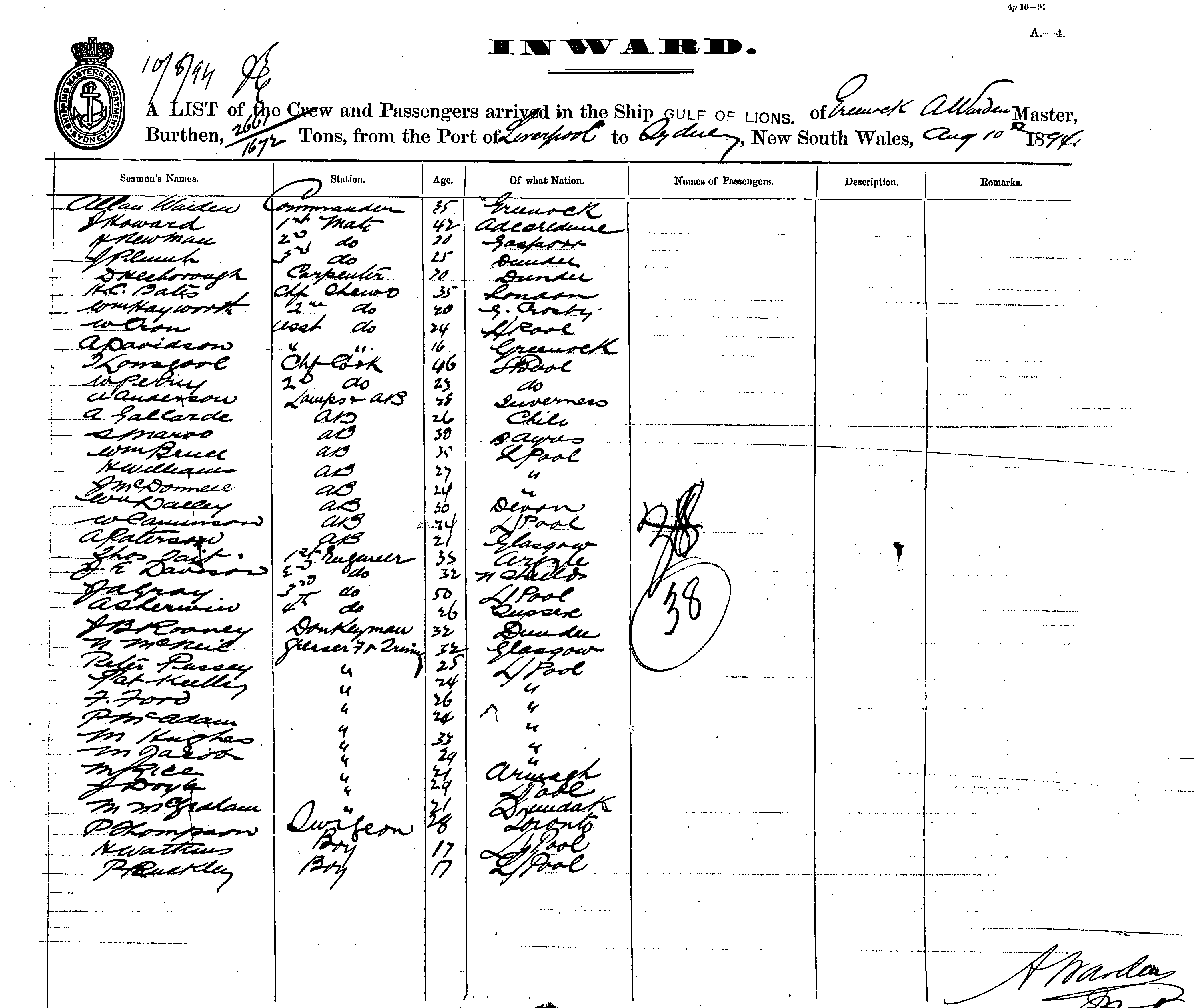 A.—4.
INWARD.
10/8/94
A LIST of the Crew and Passengers arrived in the Ship GULF OF LIONS. of Greenock A Warden Master,
Burthen, 2661/1672 Tons, from the Port of Liverpool to Sydney, New South Wales, Aug 10th 1894.
Seamen's Names. Station. Age. Of what Nation. Names of Passengers. Description. Remarks.
Allan Warden Commander 35 Greenock
J Howard 1st Mate 42
H Newman 2nd do 30 Gosport
3rd do 25 Dundee
Carpenter 30 Dundee
H.C. Bates Chf 35 London
Wm Hayworth 2nd do 20 G. Crosby
W Cron asst do 24 L/Pool
A Davidson " " 16 Greenock
Chf Cook 46 L/Pool
W Perry 2nd do 23 do
W Anderson Lamps & AB 38 Inverness
A Gallarde AB 26 Chili
AB 30 B Ayres
Wm Bruce AB 35 L/Pool
H Williams AB 27 "
J McDonnell AB 24 "
Wm Dalley AB 30 Devon
AB 24 L/Pool
A Paterson AB 21 Glasgow
Thos 1st Engineer 35
J E Davison 2nd do 32 N Shields
J A Gray 3rd do 50 L/Pool
A Sherwin 4th do 26 Sussex
J B Rooney Donkeyman 32 Dundee
N McNeil Greaser Fr & Trimr 32 Glasgow
Peter Pussey " 25 L/Pool
Pat Kielly " 24 "
F. Ford " 26 "
P McAdam " 24 "
M Hughes " 33 "
M Jacob " 24 "
M Rice " 21 Armagh
J Doyle " 24 L/Pool
M McGraham " 21
P Thompson Surgeon 28 Toronto
H Watkins Boy 17 L/Pool
P Buckley Boy 17 L/Pool
38
38
A Warden